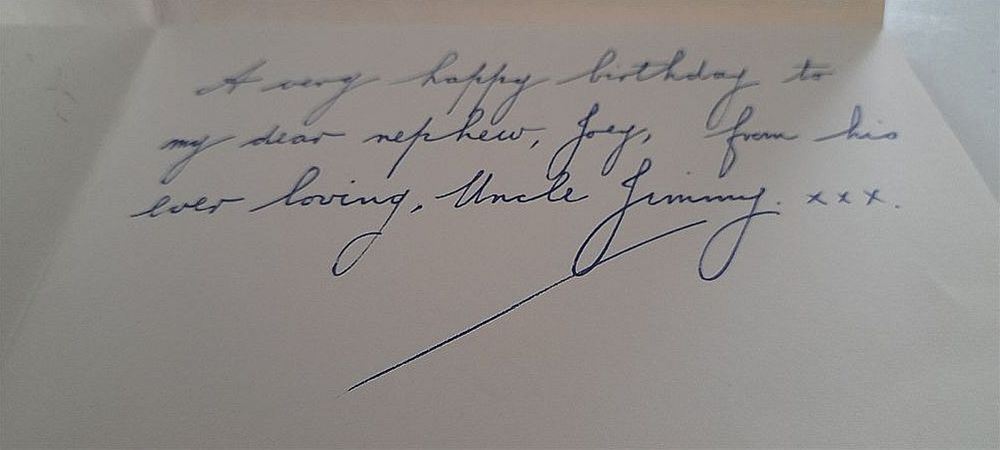 A very happy birthday to
my dear nephew, Joey, from his
ever loving, Uncle Jimmy. x x x.